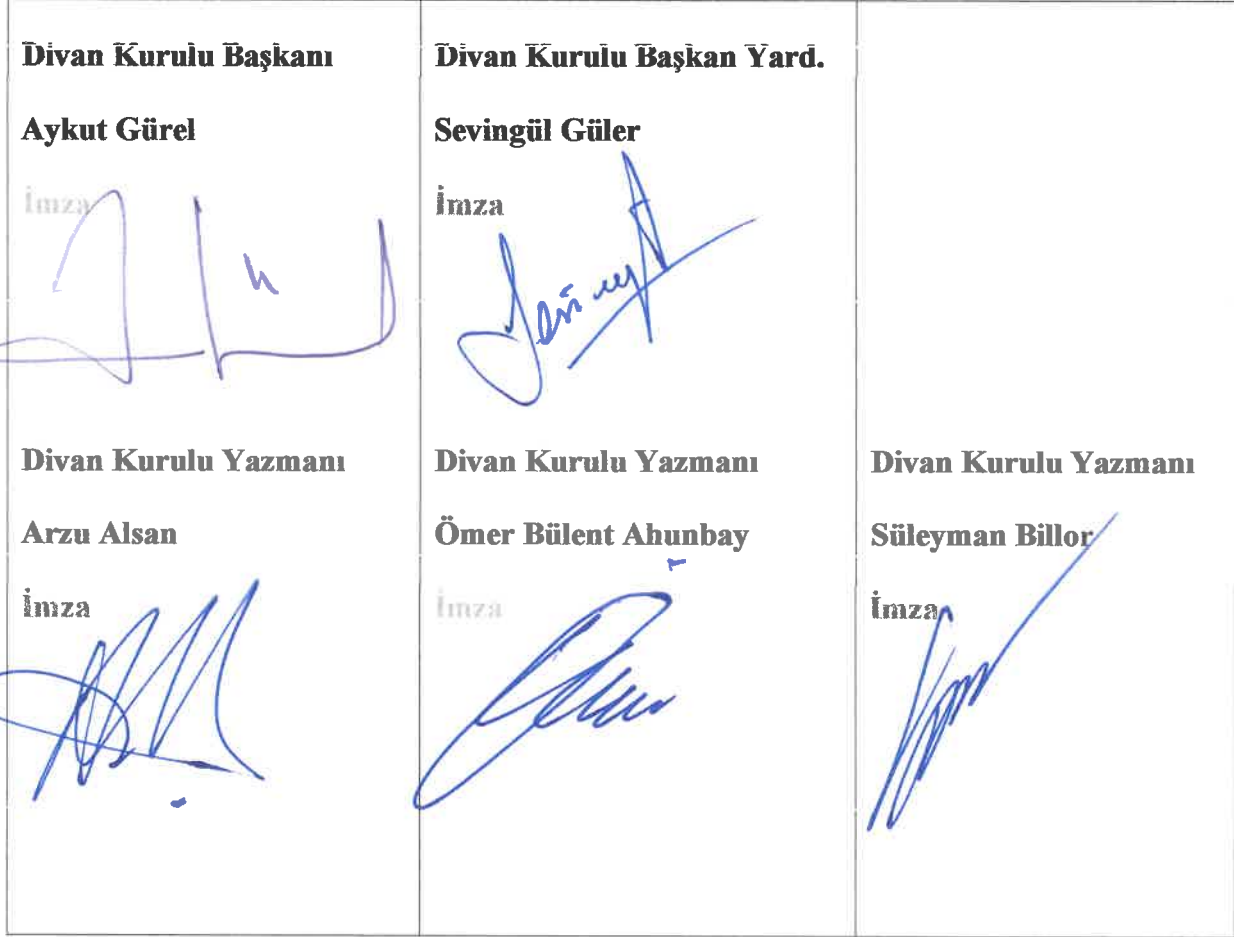 Divan Kurulu Başkanı
Aykut Gürel
İmza
Divan Kurulu Başkan Yard.
Sevingül Güler
İmza
Divan Kurulu Yazmanı
Arzu Alsan
İmza
Divan Kurulu Yazmanı
Ömer Bülent Ahunbay
İmza
Divan Kurulu Yazmanı
Süleyman Billor
İmza